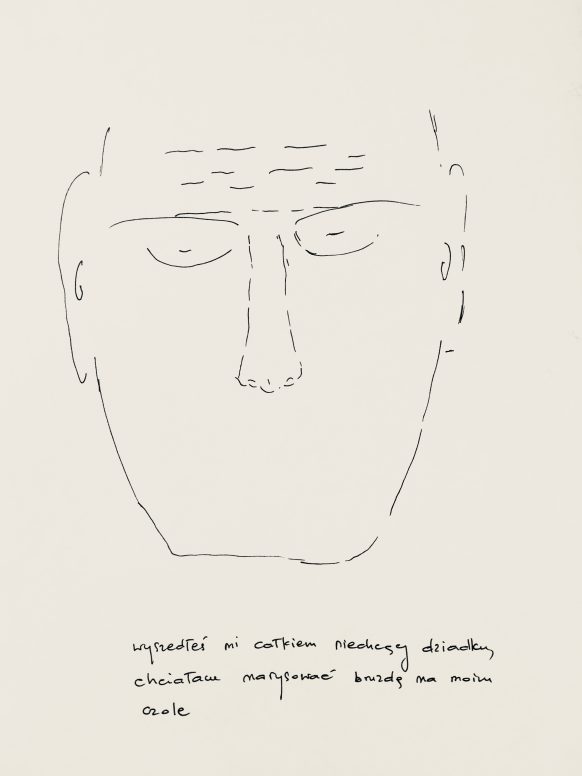 wyszedłeś mi całkiem niechcący dziadku,
chciałam narysować bruzdę na moim
czole